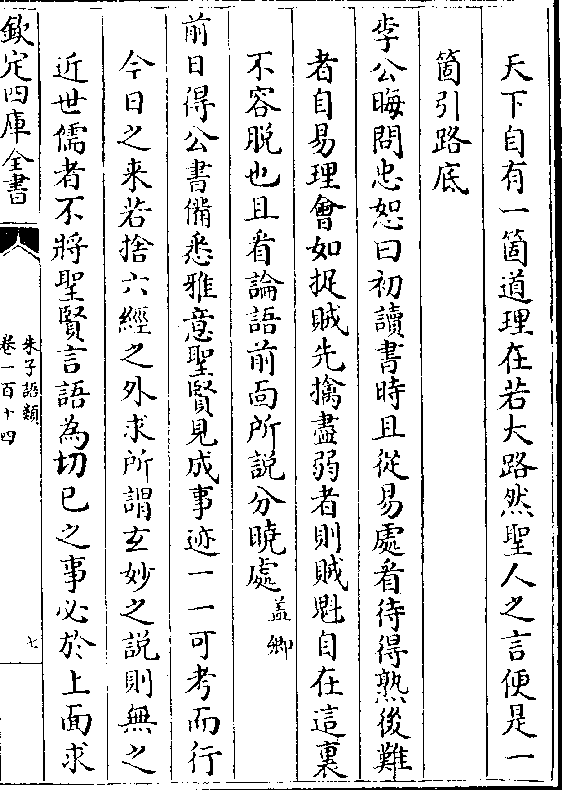 天下自有一箇道理在若大路然聖人之言便是一
箇引路底
李公晦問忠恕曰初讀書時且從易處看待得熟後難
者自易理會如捉賊先擒盡弱者則賊魁自在這裏
不容脫也且看論語前面所説分曉處蓋卿
前日得公書備悉雅意聖賢見成事迹一一可考而行
今日之来若捨六經之外求所謂玄妙之説則無之
近世儒者不將聖賢言語為切已之事必於上面求
欽定四庫全書
朱子語類
卷一百十四
七